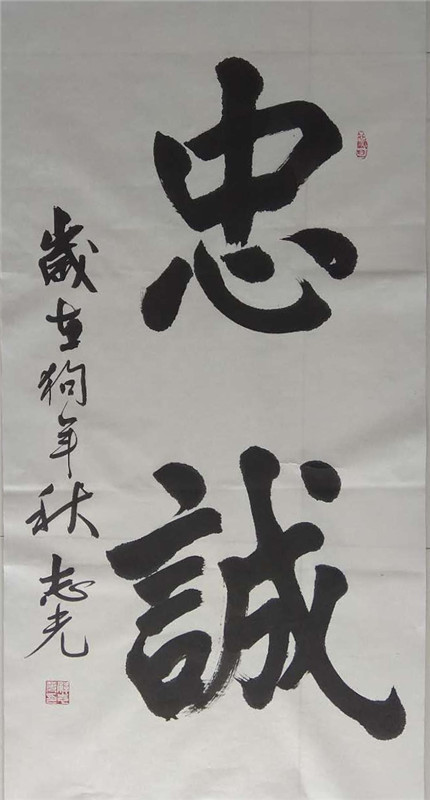 忠誠
歲在狗年秋 志光